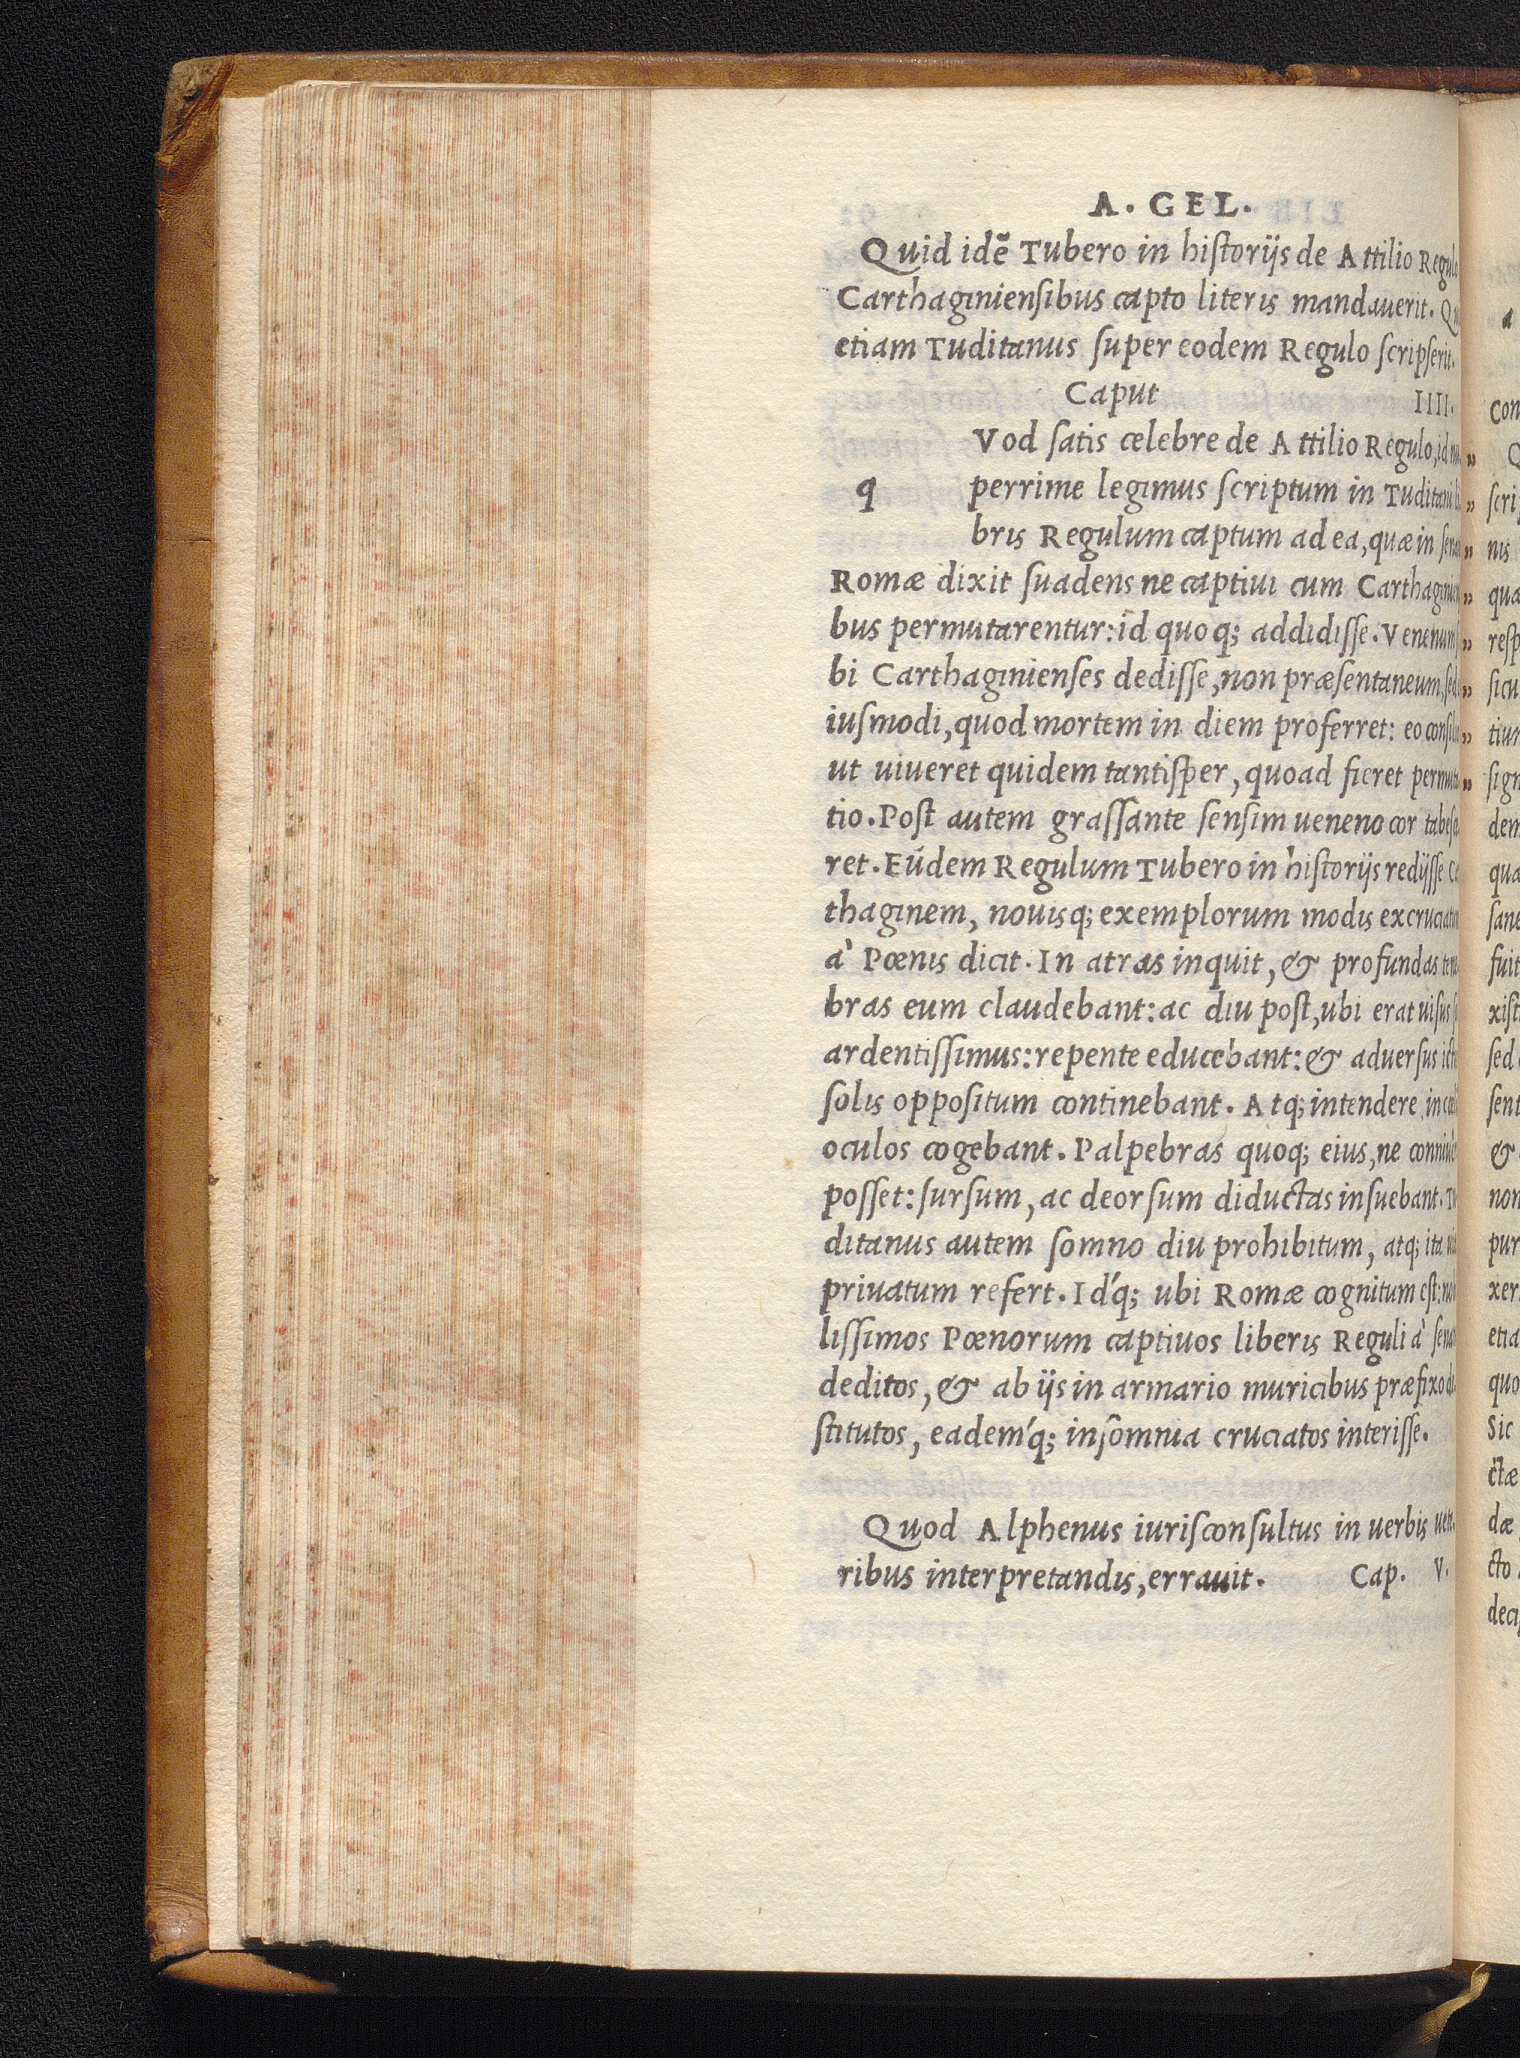 A. GEL.
Quid idē Tubero in historijs de Attilio Regulo
Carthaginiensibus capto literis mandauerit.
etiam Tuditanus super eodem Regulo scripserit.
Caput IIII.
Vod satis celebre de Attilio Regulo, id
q perrime legimus scriptum in Tuditani
bris Regulum captum ad ea, quæ in
Romæ dixit suadens ne captiui cum
bus permutarentur: id quoq; addidisse. Venenum
bi Carthaginienses dedisse, non præsentaneum,
iusmodi, quod mortem in diem proferret: eo
ut uiueret quidem tantisper, quoad fieret
tio. Post autem grassante sensim ueneno cor
ret. Eúdem Regulum Tubero in historijs redijsse
thaginem, nouisq; exemplorum modis
à Pœnis dicit. In atras inquit, & profundas
bras eum claudebant: ac diu post, ubi erat uisus
ardentissimus: repente educebant: & aduersus
solis oppositum continebant. Atq; intendere in
oculos cogebant. Palpebras quoq; eius, ne
posset: sursum, ac deorsum diductas insuebant.
ditanus autem somno diu prohibitum, atq; ita
priuatum refert. Id'q; ubi Romæ cognitum est:
lissimos Pœnorum captiuos liberis Reguli à
deditos, & ab ijs in armario muricibus præfixo
stitutos, eadem'q; insomnia cruciatos interisse.
Quod Alphenus iurisconsultus in uerbis
ribus interpretandis, errauit. Cap. V.
a
con
Q
scri
nis
qua
resp
sicu
tiun
sign
dem
qua
sane
fuit
xist
sed
sent
&
non
pur
xer
etia
quo
Sic
ctæ
dæ
cto
deci